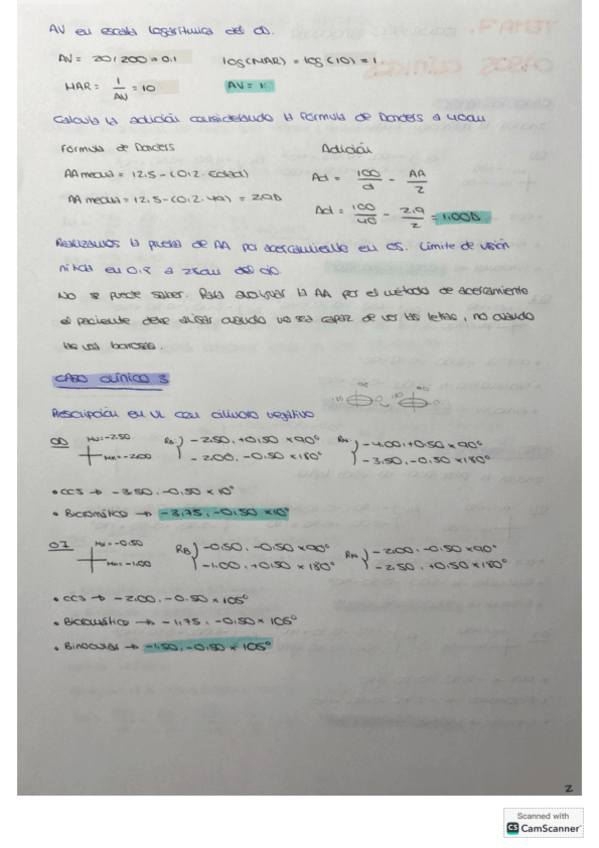 AV en escala logarítmica del OD.
AV = 20/200 = 0.1 log(MAR) = log(10) = 1
MAR = 1/AV = 10 AV = 1
Calcula la adición considerando la fórmula de Donders a 40cm
Fórmula de Donders Adición
AA media = 12.5 - (0.2 · edad) Ad = 100/d - AA/2
AA media = 12.5 - (0.2 · 49) = 2.9D Ad = 100/40 - 2.9/2 = 1.00D
Realizamos la prueba de AA por acercamiento en OS. Límite de visión
nítida en 0.8 a 28cm del OD.
No se puede saber. Para averiguar la AA por el método de acercamiento
el paciente debe avisar cuando no sea capaz de ver las letras, no cuando
las vea borrosas.
CASO CLÍNICO 3
Prescripción en VL con cilindro negativo
OD -2.50 RB -2.50, +0.50 x 90° RN -4.00, +0.50 x 90°
-2.00 -2.00, -0.50 x 180° -3.50, -0.50 x 180°
• CCJ → -3.50, -0.50 x 10°
• Bicromático → -3.75, -0.50 x 10°
OI -0.50 RB -0.50, -0.50 x 90° -2.00, -0.50 x 90°
-1.00 -1.00, +0.50 x 180° -2.50, +0.50 x 180°
• CCJ → -2.00, -0.50 x 105°
• Bicromático → -1.75, -0.50 x 105°
• Binocular → -1.50, -0.50 x 105°
2
Scanned with
CS CamScanner